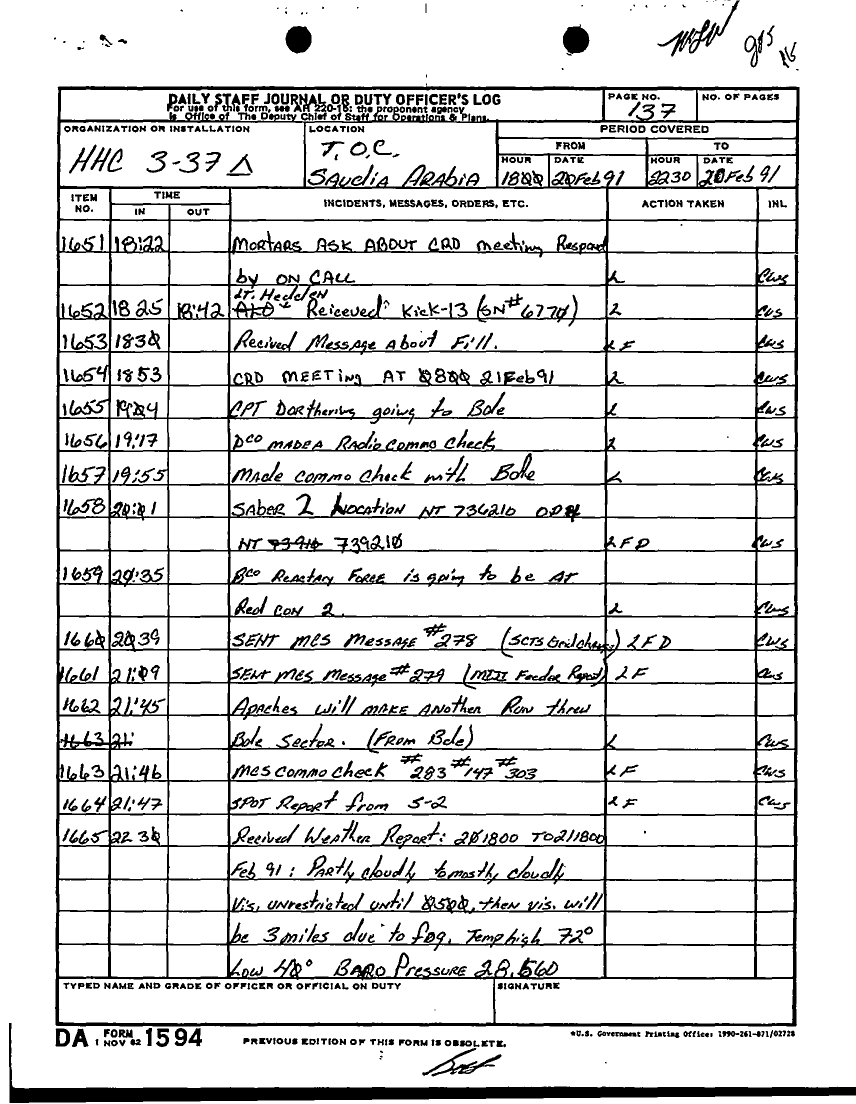 DAILY STAFF JOURNAL OR DUTY OFFICER'S LOG
For use of this form, see AR 220-15; the proponent agency
is Office of The Deputy Chief of Staff for Operations & Plans.
PAGE NO.
137
NO. OF PAGES
ORGANIZATION OR INSTALLATION
HHC 3-37
LOCATION
T.O.C.
SAUDIA ARABIA
PERIOD COVERED
FROM
TO
HOUR
1800
DATE
20Feb91
HOUR
2230
DATE
20Feb91
ITEM NO.
TIME
IN
OUT
INCIDENTS, MESSAGES, ORDERS, ETC.
ACTION TAKEN
INL
1651 18:22 MORTARS ASK ABOUT CRD meeting Respond
by ON CALL CWS
1652 1825 18:42 LT. Hedden Reiceved Kick-13 (SN#6770) 2 CWS
1653 1830 Recived Message About Fill. 2F CWS
1654 1853 CRD MEETING AT 0800 21Feb91 2 CWS
1655 1904 CPT going to Bole 2 CWS
1656 19:17 Dco MADE A Radio commo check 2 CWS
1657 19:55 Made commo check with Bole CWS
1658 20:01 SABER 2 LOCATION NT 736210
NT 73910 739210 2FD CWS
1659 20:35 Bco Reactary Force is going to be At
Red CON 2. 2 CWS
1660 2039 SENT MCS Message #278 (SCTS Grid change) 2FD CWS
1661 21:09 SENT MCS Message #279 (MIJI Feeder Report) 2F CWS
1662 21:45 Apaches will MAKE Another Run threw
1663 21: Bole Sector. (From Bole) CWS
1663 21:46 MCS commo check #283 #147 #303 2F CWS
1664 21:47 SPOT Report from S-2 2F CWS
1665 2230 Recived Weather Report: 201800 TO 211800
Feb 91: Partly cloudly to mostly cloudly
Vis, unrestricted until 0500, then vis. will
be 3 miles due to fog. Temp high 72°
Low 40° BARO Pressure 28.560
TYPED NAME AND GRADE OF OFFICER OR OFFICIAL ON DUTY
SIGNATURE
DA FORM 1594
1 NOV 62
PREVIOUS EDITION OF THIS FORM IS OBSOLETE.
*U.S. Government Printing Office: 1990-261-871/02728